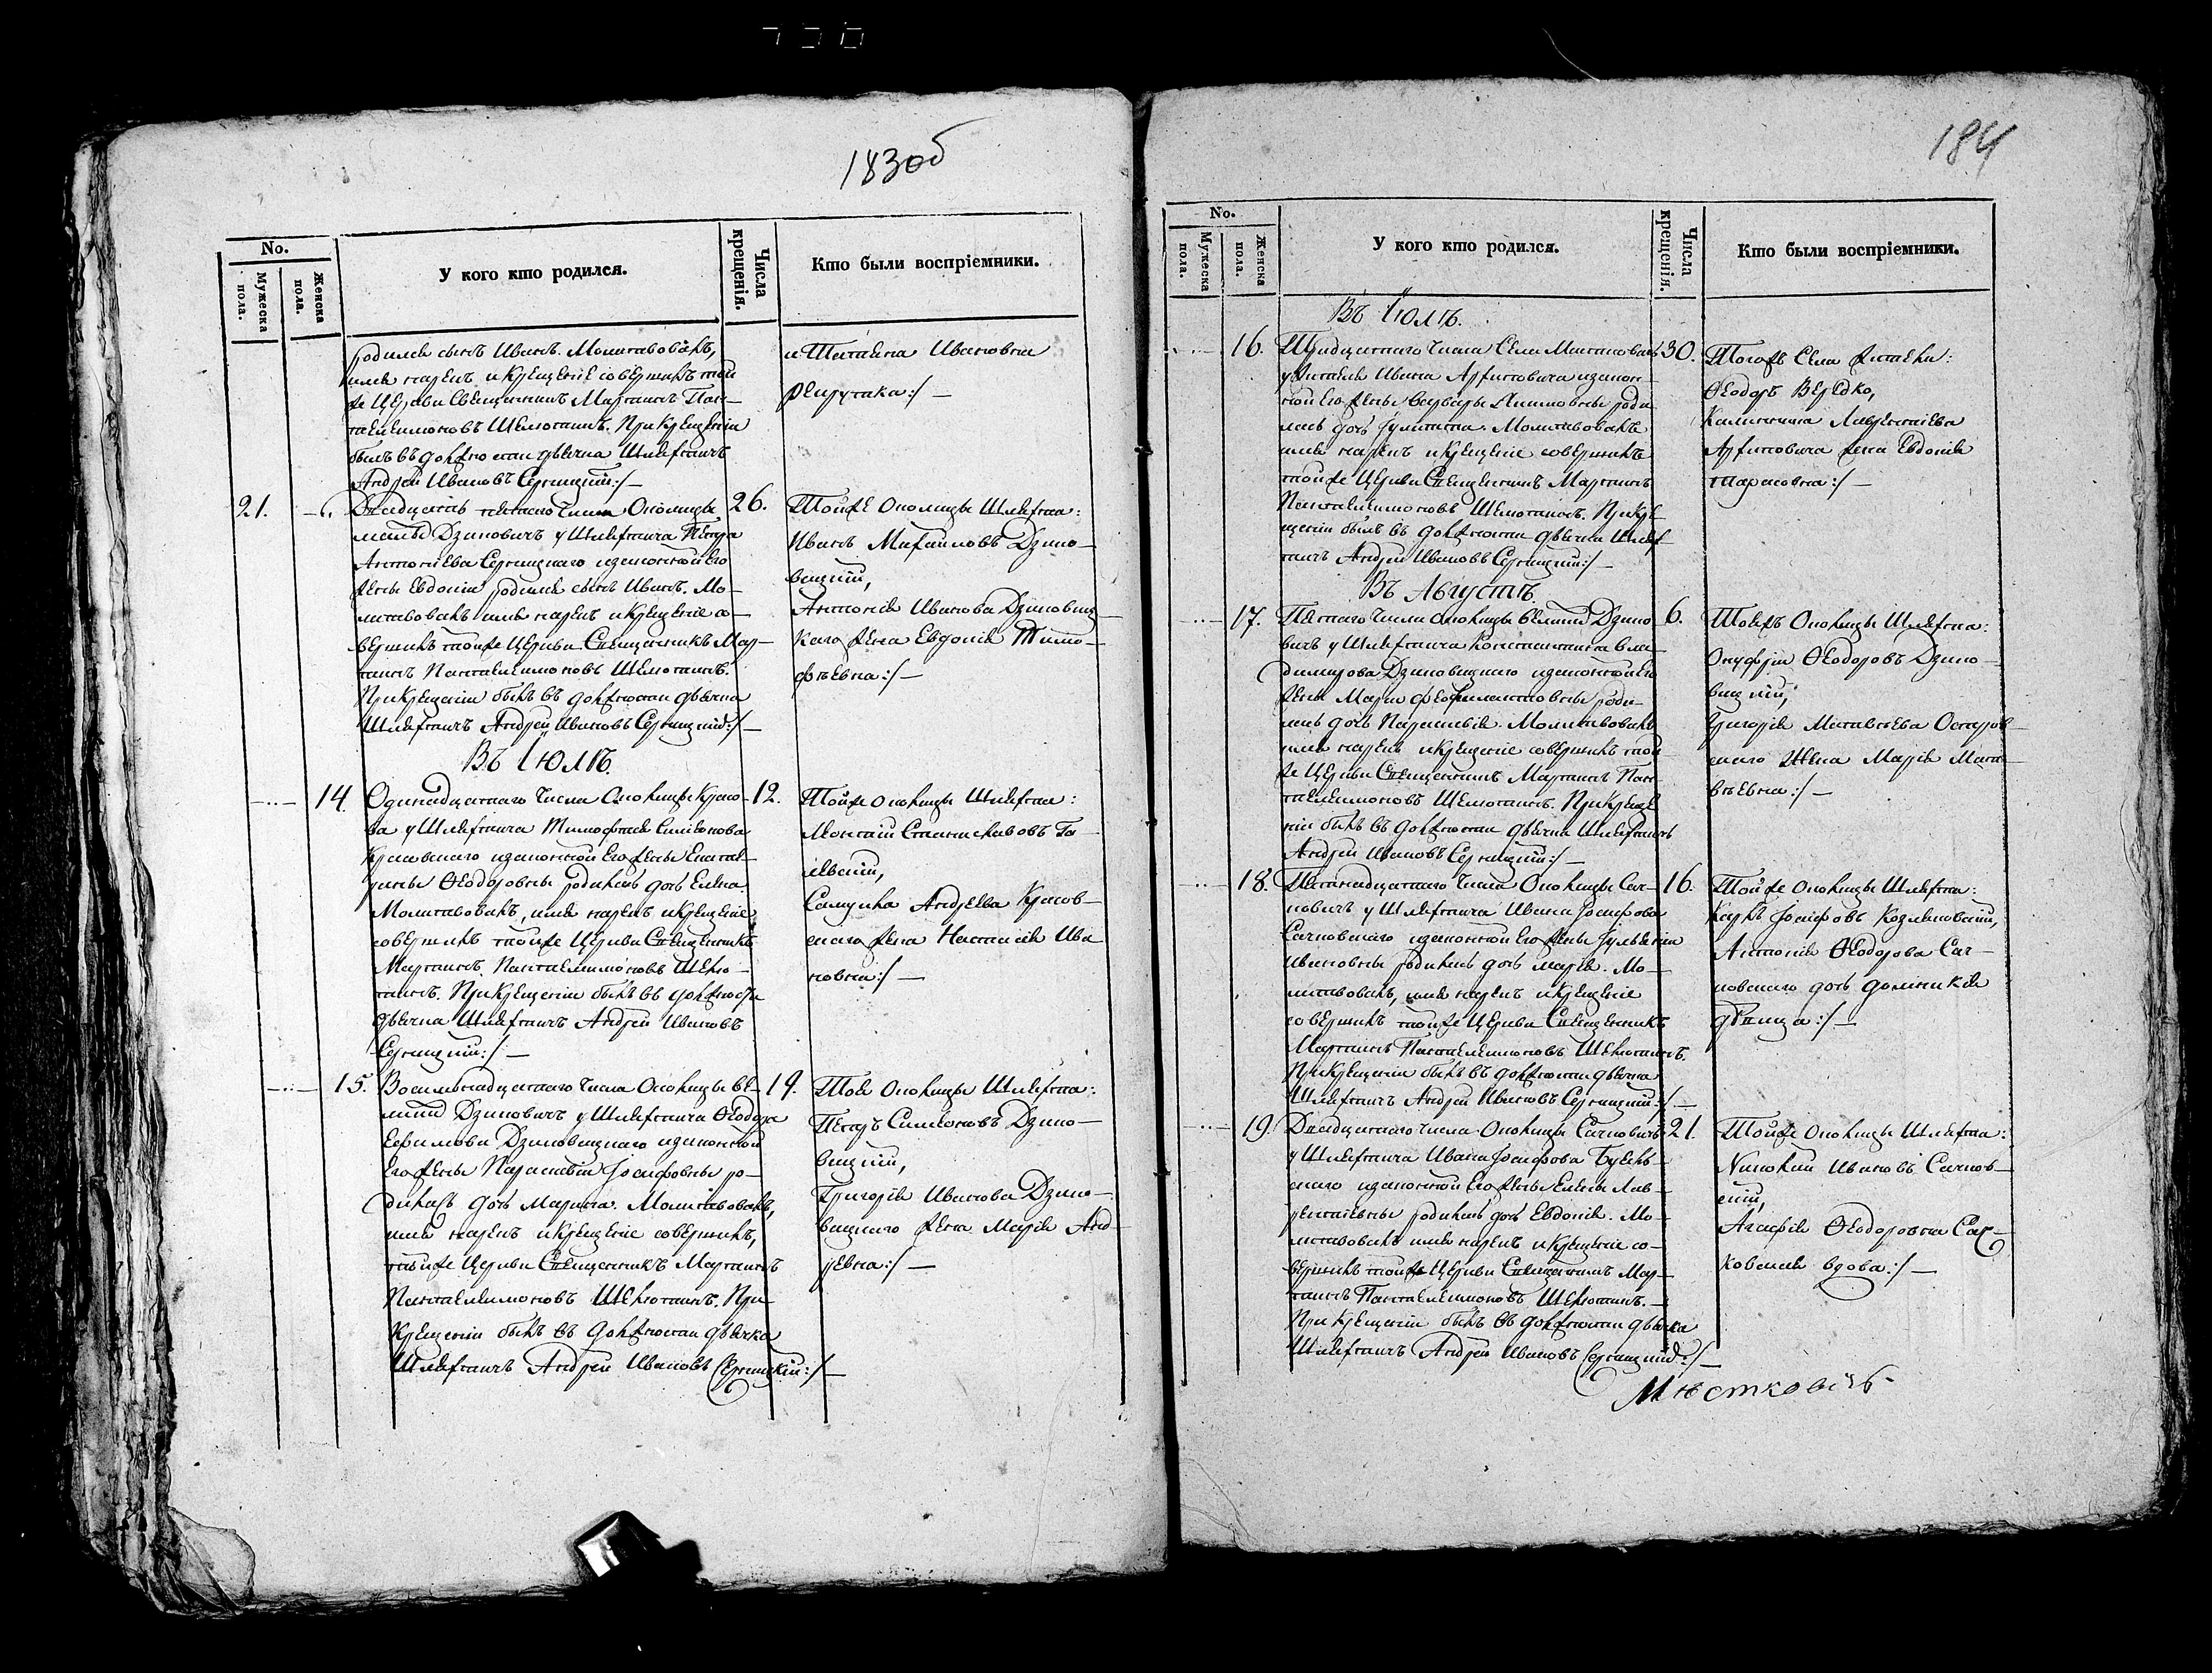 183об
No.
Мужеска пола.
Женска пола.
У кого кто родился.
Числа крещенія.
Кто были воспріемники.
родился сынъ Иванъ. Молитвовалъ,
имя нареклъ и крещеніе совершилъ той
же Церкви Священникъ Мартинъ Пан-
телеимоновъ Шелютинъ. При крещеніи
былъ въ должности дьячка Шляхтичъ
Андрей Ивановъ Серницкій:/—
и Татіана Ивановна
21.
Двадцать пятаго числа Околицы
малы Дзиковичъ у Шляхтича Петра
Антоніева Серницкаго изаконной его
жены Евдокіи родился сынъ Иванъ. Мо-
литвовалъ имя нареклъ и крещеніе со-
вершилъ тойже Церкви Священникъ Мар-
тинъ Пантелеимоновъ Шелютинъ.
При крещеніи былъ въ должности дьячка
Шляхтичъ Андрей Ивановъ Серницкій:/—
26.
Тойже Околицы Шляхта:
Иванъ Михаиловъ Дзико-
вицкій,
Антонія Иванова Дзиковиц-
каго жена Евдокія Тимо-
фѣевна:/—
Въ Іюлѣ.
14.
Одинадцатаго числа Околицы Красо-
ва у Шляхтича Тимофтея Симеонова
Красовскаго изаконной его жены Екате-
рины Ѳеодоровны родилась дочь Елена.
Молитвовалъ, имя нареклъ и крещеніе
совершилъ тойже Церкви Священникъ
Мартинъ Пантелеимоновъ Шелю-
тинъ. При крещеніи былъ въ должности
дьячка Шляхтичъ Андрей Ивановъ
Серницкій:/—
12.
Тойже околицы Шляхта:
Станиславовъ
Самуила Андреева Красов-
скаго жена Настасія Ива
новна:/—
15.
Восемьнадцатаго числа Околицы Ве-
ликій Дзиковичъ у Шляхтича Ѳеодора
Ефимова Дзиковицкаго изаконной
его жены Параскевіи Іосифовны ро-
дилась дочь Марина. Молитвовалъ,
имя нареклъ и крещеніе совершилъ,
тойже Церкви Священникъ Мартинъ
Пантелеимоновъ Шелютинъ. При
крещеніи былъ въ должности дьячка
Шляхтичъ Андрей Ивановъ Серницкій:/—
19.
Той Околицы Шляхта:
Петръ Симеоновъ Дзико-
вицкій,
Григорія Иванова Дзико-
вицкаго жена Марія Анд-
реевна:/—
184
No.
Мужеска пола.
Женска пола.
У кого кто родился.
Числа крещенія.
Кто были воспріемники.
Въ Іюлѣ.
16.
числа Села
Ивана изакон-
ной его жены Варвары роди
лась дочь Іулитта. Молитвовалъ
имя нареклъ и крещеніе совершилъ
тойже Церкви Священникъ Мартинъ
Пантелеимоновъ Шелютинъ. При кре-
щеніи былъ въ должности дьячка Шлях-
тичъ Андрей Ивановъ Серницкій:/—
30.
Тогожъ Села жители:
Ѳеодоръ Вередко,
Лаврентіева
жена Евдокія
Тарасовна:/—
Въ Августѣ.
17.
Пятаго числа Околицы Великій Дзико
вичъ у Шляхтича Константина Вла-
димирова Дзиковицкаго изаконной его
жены Маріи роди-
лась дочь Параскевія. Молитвовалъ
имя нареклъ и крещеніе совершилъ той
же Церкви Священникъ Мартинъ Пан
телеимоновъ Шелютинъ. При креще
ніи былъ въ должности дьячка Шляхтичъ
Андрей Ивановъ Серницкій:/—
6.
Тойжъ Околицы Шляхта:
Онуфрій Ѳеодоровъ Дзико-
вицкій,
Григорія Матвѣева Остров-
скаго Жена Марія Мат-
вѣевна:/—
18.
Пятнадцатаго числа Околицы Сач-
ковичъ у Шляхтича Ивана Іосифова
Сачковскаго изаконной его жены Іуліаніи
Ивановны родилась дочь Марія. Мо-
литвовалъ, имя нареклъ и крещеніе
совершилъ тойже Церкви Священникъ
Мартинъ Пантелеимоновъ Шелютинъ.
При крещеніи былъ въ должности дьячка
Шляхтичъ Андрей Ивановъ Серницкій:/—
16.
Тойже Околицы Шляхта:
Карлъ Іосифовъ Козляковскій,
Антонія Ѳеодорова Сач-
ковскаго дочь Доминикія
дѣвица:/—
19.
Двадцатаго числа Околицы Сачковичъ
у Шляхтича Ивана Іосифова
скаго изаконной его жены Елены Лав-
рентіевны родилась дочь Евдокія. Мо-
литвовалъ имя нареклъ и крещеніе со-
вершилъ тойже Церкви Священникъ Мар-
тинъ Пантелеимоновъ Шелютинъ.—
При крещеніи былъ въ должности дьячка
Шляхтичъ Андрей Ивановъ Серницкій:/—
21.
Тойже Околицы Шляхта:
Ивановъ Сачков-
скій,
Агафія Ѳеодоровна Сач-
ковская вдова:/—
Мѣстковичъ